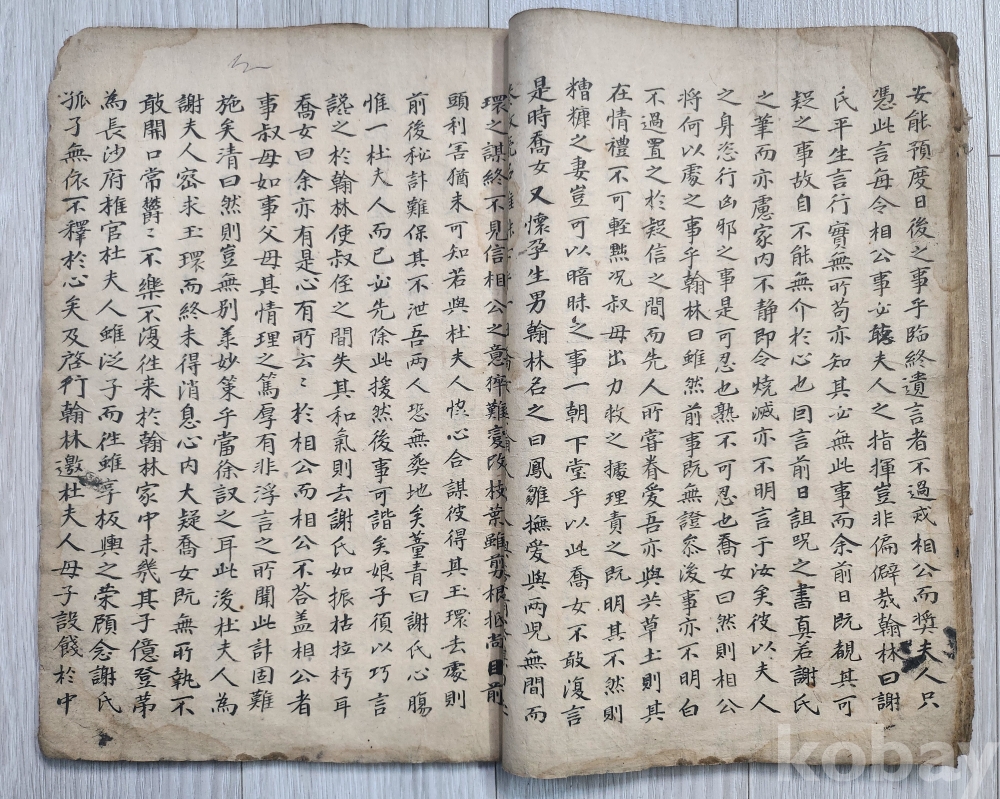 安能預度日後之事乎臨終遺言者不過戒相公而奬夫人只
憑此言每令相公事必聽夫人之指揮豈非偏僻哉翰林曰謝
氏平生言行實無所苟亦知其必無此事而余前日既覩其可
疑之事故自不能無介於心也囙言前日詛咒之書真若謝氏
之筆而亦慮家內不靜即令燒滅亦不明言于汝矣彼以夫人
之身恣行凶邪之事是可忍也熟不可忍也喬女曰然則相公
將何以處之事乎翰林曰雖然前事既無證叅後事亦不明白
不過置之於疑信之間而先人所嘗眷愛吾亦與共草土則其
在情禮不可輕黜况叔母出力救之據理責之既明其不然則
糟糠之妻豈可以暗昧之事一朝下堂乎以此喬女不敢復言
是時喬女又懷孕生男翰林名之曰鳳雛撫愛與兩兒無間而
環之謀終不見信相公之意猝難變改枝葉雖剪根柢尚
頭利害猶未可知若與杜夫人協心合謀彼得其玉環去處則
前後秘計難保其不泄吾兩人恐無葬地矣董青曰謝氏心膓
惟一杜夫人而已必先除此援然後事可諧矣娘子須以巧言
讒之於翰林使叔侄之間失其和氣則去謝氏如振枯拉朽耳
喬女曰余亦有是心有所云〻於相公而相公不答盖相公者
事叔母如事父母其情理之篤厚有非浮言之所聞此計固難
施矣清曰然則豈無別㨾妙策乎當徐設之耳此後杜夫人為
謝夫人密求玉環而終未得消息心內大疑喬女既無所執不
敢開口常欝〻不樂不復徃来於翰林家中未幾其子億登第
為長沙府推官杜夫人雖泛子而徃雖享板輿之荣顧念謝氏
孤子無依不釋於心矣及啓行翰林邀杜夫人母子設餞於中
kobay